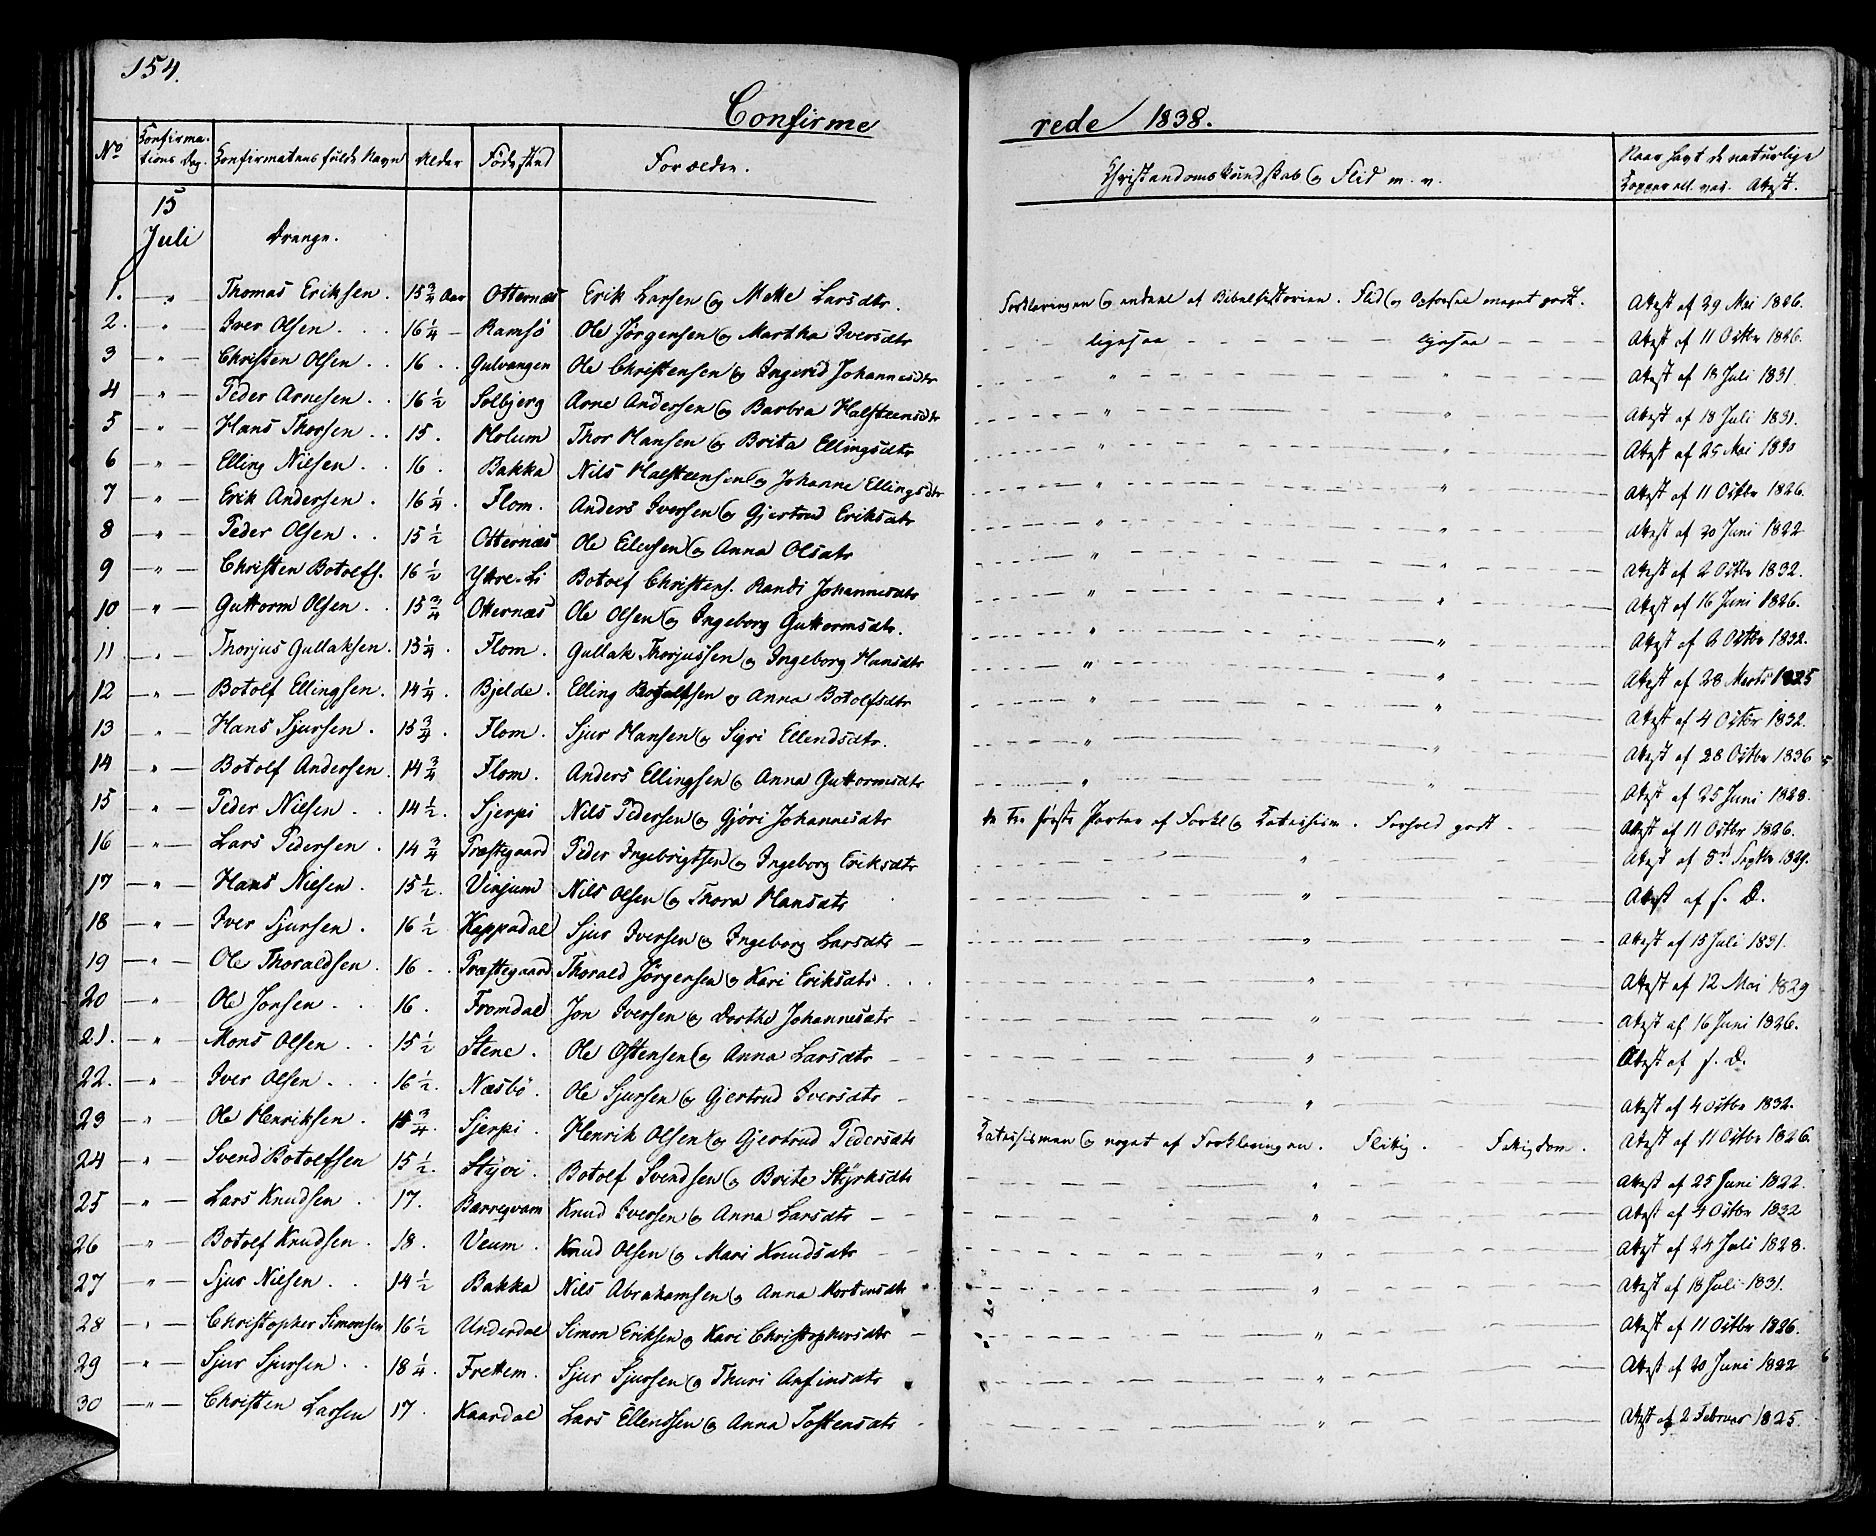 154.
Confirmerede 1838.
No Confirmations Dag. Confirmatens fulde Navn Alder Fødested Forældre. Christendoms Kundskab og Flid m. v. Naar havt de naturlige Kopper ell. vac. Attest.
15 Juli Drenge.
1. " Thomas Eriksen. 15 3/4 Aar Otternæs Erik Larsen og Mette Larsdtr. Forklaringen og endeel af Bibelhistorien. Flid og Opførsel meget godt. Attest af 29 Mai 1826.
2. " Iver Olsen. 16 1/4 Ramsö Ole Jørgensen og Martha Iversdtr ligesaa ligesaa Attest af 11 Octbr 1826.
3 " Christen Olsen 16 Gulvangen Ole Christensen og Ingerid Johannesdtr " " Attest af 18 Juli 1831.
4 " Peder Arnesen 16 1/2 Solbjerg Arne Andersen og Barbra Halsteensdtr " " Attest af 18 Juli 1831.
5 " Hans Thorsen 15. Holum Thor Hansen og Brita Ellingsdtr " " Attest af 25 Mai 1830
6 " Elling Nilsen 16. Bakka Nils Halsteensen og Johanne Ellingsdtr " " Attest af 11 Octbr 1826.
7 " Erik Andersen. 16 1/4. Flom. Anders Iversen og Gjertrud Eriksdtr " " Attest af 20 Juni 1822
8 " Peder Olsen 15 1/2 Otternæs Ole Eilersen og Anna Olsdtr " " Attest af 2 Octbr 1832.
9 " Christen Botolfs. 16 1/2 Yttre-Li Botolf Christens. Randi Johannesdtr " " Attest af 16 Juni 1826.
10 " Guttorm Olsen 15 3/4 Otternæs Ole Olsen og Ingeborg Guttormsdtr. " " Attest af 6 Octbr 1832.
11 " Thorjus Gullaksen. 15 1/4. Flom. Gullak Thorjussen og Ingeborg Hansdtr " " Attest af 28 Marts 1825
12 " Botolf Ellingsen. 14 1/4. Bjelde. Elling Botolfsen og Anna Botolfsdtr " " Attest af 4 Octbr 1832.
13 " Hans Sjursen. 15 3/4. Flom. Sjur Hansen og Sigri Ellendsdtr. " " Attest af 28 Octbr 1836
14 " Botolf Andersen. 14 3/4 Flom. Anders Ellingsen og Anna Guttormsdtr " " Attest af 25 Juni 1828.
15 " Peder Nielsen 14 1/2. Sjerpi Nils Pedersen og Gjøri Johannesdtr de tre første Parter af Forkl og Catechism. Forhold godt. Attest af 11 Octbr 1826.
16 " Lars Pedersen. 14 3/4 Præstegaard Peder Ingebrigtsen og Ingeborg Eriksdtr " Attest af 5 Septbr 1829.
17 " Hans Nielsen. 15 1/2. Vinjum Nils Olsen og Thora Hansdtr " Attest af s. D.
18 " Iver Sjursen. 16 1/2 Keppadal Sjur Iversen og Ingeborg Larsdtr " Attest af 15 Juli 1831.
19 " Ole Thoraldsen. 16. Præstegaard Thorald Jørgensen og Kari Eriksdtr " Attest af 12 Mai 1829
20 " Ole Jonsen 16. Fromdal Jon Iversen og Dorthe Johannesdtr " Attest af 16 Juni 1826.
21. " Mons Olsen 15 1/2 Stene. Ole Ostensen og Anna Larsdtr " Attest af s. D.
22. " Iver Olsen 16 1/2. Næsbö Ole Sjursen og Gjertrud Iversdtr " Attest af 4 Octbr 1832.
23 " Ole Henriksen. 15 3/4. Sjerpi. Henrik Olsen og Gjertrud Pedersdtr Catechismen og noget af Forklaringen. Flittig. Sædeligdom. Attest af 11 Octbr 1826.
24 " Svend Botolfsen 15 1/2. Styvi. Botolf Svendsen og Brite Styrksdtr " Attest af 25 Juni 1822.
25 " Lars Knudsen. 17. Bærreqvam Knud Iversen og Anna Larsdtr " Attest af 4 Octbr 1832
26 " Botolf Knudsen. 18. Veum. Knud Olsen og Mari Knudsdtr " Attest af 24 Juli 1828.
27 " Sjur Nielsen 14 1/2 Bakka Nils Abrahamsen og Anna Mortensdtr " Attest af 18 Juli 1831.
28 " Christopher Simonsen 16 1/2 Underdal Simon Eriksen og Kari Christophersdtr " Attest af 11 Octbr 1826.
29 " Sjur Sjursen 18 1/4. Frettem. Sjur Sjursen og Thuri Anfinsdtr " Attest af 20 Juni 1822
30 " Christen Larsen 17. Kaardal Lars Ellendsen og Anna Tostensdtr " Attest af 2 Februar 1825.